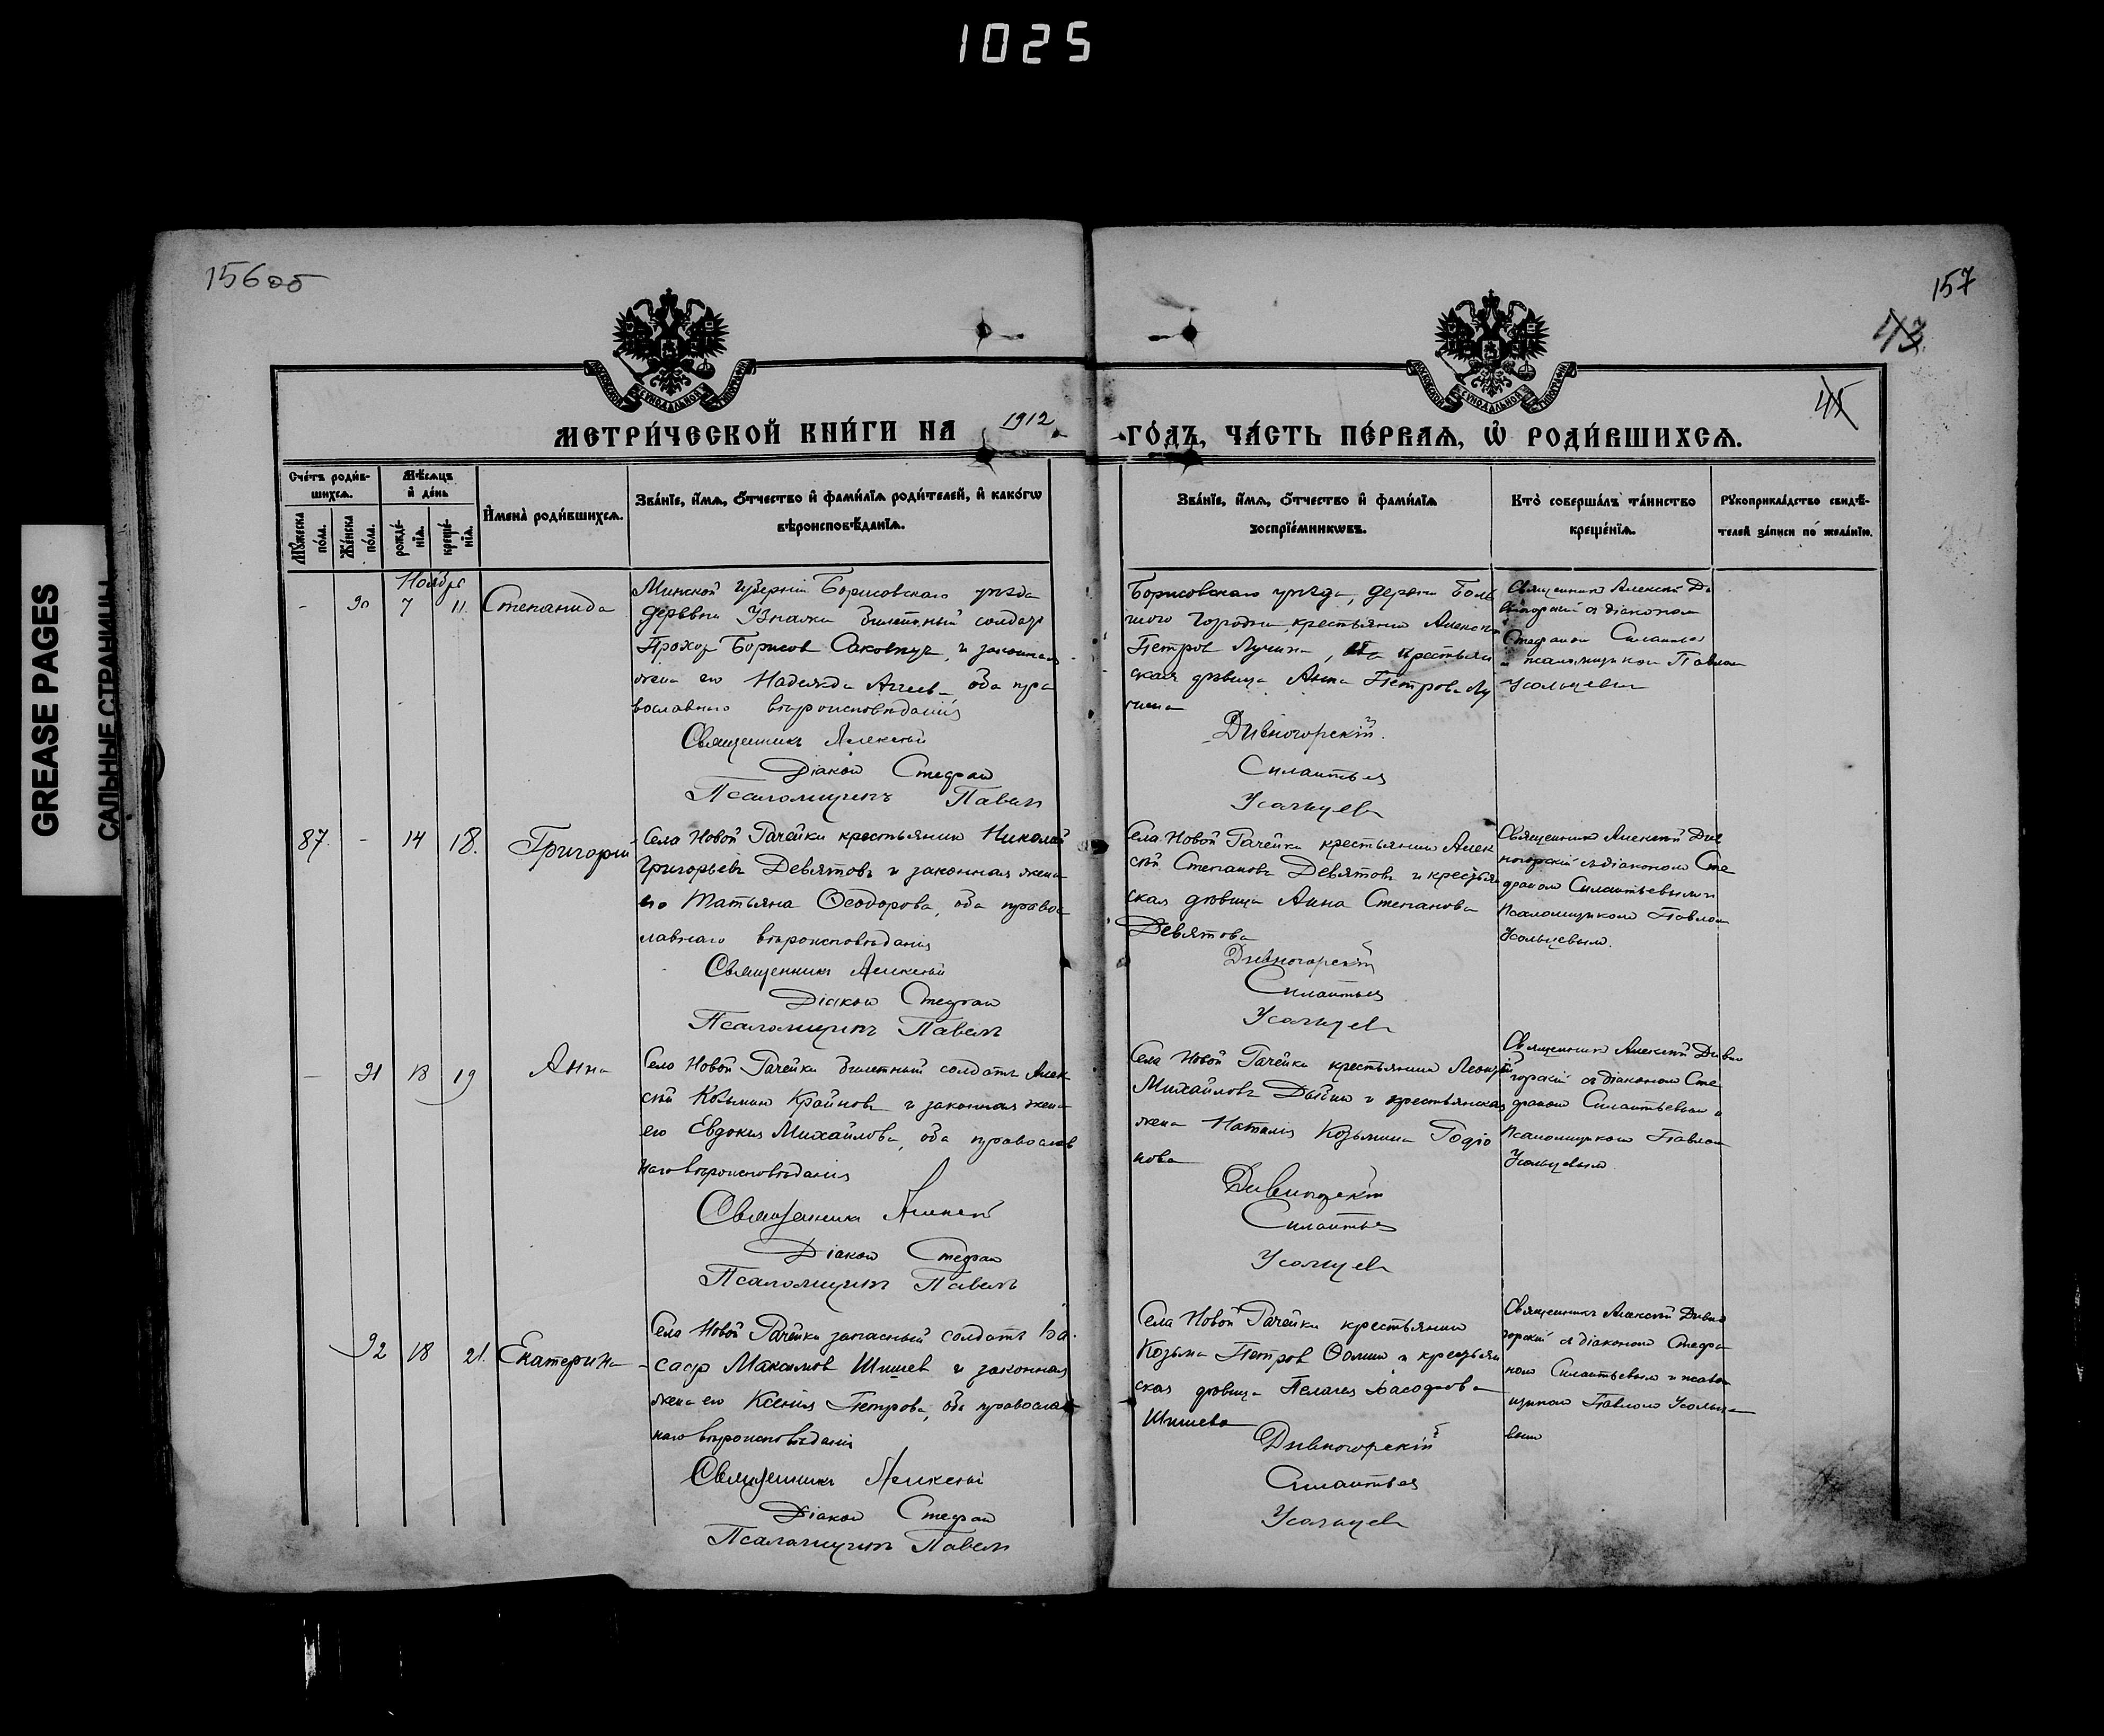 1025
GREASE PAGES
САЛЬНЫЕ СТРАНИЦЫ
156об
157
43
45
МЕТРИ́ЧЕСКОЙ КНИ́ГИ НА 1912 ГО́ДЪ, ЧА́СТЬ ПЕ́РВАѦ, Ѡ҆ РОДИ́ВШИХСѦ.
Сче́тъ роди́в-
шихсѧ.
Мꙋ́жеска по́ла.
Же́нска по́ла.
Мѣ́сѧцъ и҆ де́нь
рожде́нїѧ.
креще́нїѧ.
И҆мена̀ роди́вшихсѧ.
Зва́нїе, и҆́мѧ, ѻ҆́тчество и҆ фами́лїѧ роди́телей, и҆ како́гѡ
вѣроисповѣ́данїѧ.
Зва́нїе, и҆́мѧ, ѻ҆́тчество и҆ фами́лїѧ
воспрїе́мникѡвъ.
Кто̀ соверша́лъ та́инство
креще́нїѧ.
Рꙋкоприкла́дство свидѣ́-
телей за́писи по жела́нїю.
Ноябрь
- 90 7 11. Степанида
Минской губерніи Борисовскаго уѣзда
деревни билетный солдатъ
Прохор Борисов и законная
жена его Надежда оба пра
вославнаго вѣроисповѣданія
Священникъ Алексѣй
Діакон Стефан
Псаломщикъ Павел
Борисовскаго уѣзда, деревни Боль
шого Городна, крестьянин Алексѣй
Петров Лучина, и крестьян
ская дѣвица Анна Петрова Лу
чина
Дивногорскій.
Силантьев
Усольцев
Священник Алексѣй Ди
вногорскій с діаконом
Стефаном Силантьев
и псаломщиком Павлом
Усольцевым
87. - 14 18. Григорій
Села Новой Рачейки крестьянин Николай
Григорьевъ Девятовъ и законная жена
его Татьяна Ѳеодорова, оба правос
лавнаго вѣроисповѣданія
Священникъ Алексѣй
Діакон Стефан
Псаломщикъ Павелъ
Села Новой Рачейки крестьянин Алек
сѣй Степановъ Девятов и крестьян
ская дѣвица Анна Степанова
Девятова
Дивногорскій
Силантьев
Усольцев
Священник Алексѣй Див
ногорскій с діаконом Сте
фаном Силантьевым и
псаломщиком Павлом
Усольцевым.
- 91 18 19 Анна
Села Новой Рачейки билетный солдатъ Алек
сѣй Козьмин Крайновъ и законная жена
его Евдокия Михайлова, оба православ
наго вѣроисповѣданія
Священник Алексѣй
Діакон Стефан
Псаломщикъ Павелъ
Села Новой Рачейки крестьянин
Михайловъ и крестьянская
жена Наталія Козьмина Родіо
нова
Дивногорскій
Силантьев
Усольцев
Священник Алексѣй Дивно
горскій с діаконом Сте
фаном Силантьевым и
псаломщиком Павлом
Усольцевым.
92 18 21. Екатерина
Села Новой Рачейки запасный солдатъ Ва
саф Максимов Шишев и законная
жена его Ксения Петрова, оба православ
наго вѣроисповѣданія
Священникъ Алексѣй
Діакон Стефан
Псаломщикъ Павел
Села Новой Рачейки крестьянин
Козьма Петров Ѳомин и крестьян
ская дѣвица Пелагея Васафова
Шишева
Дивногорскій
Силантьев
Усольцев
Священникъ Алексѣй Дивно
горскій с діаконом Стефа
ном Силантьевым и псалом
щиком Павлом Усольце
вым